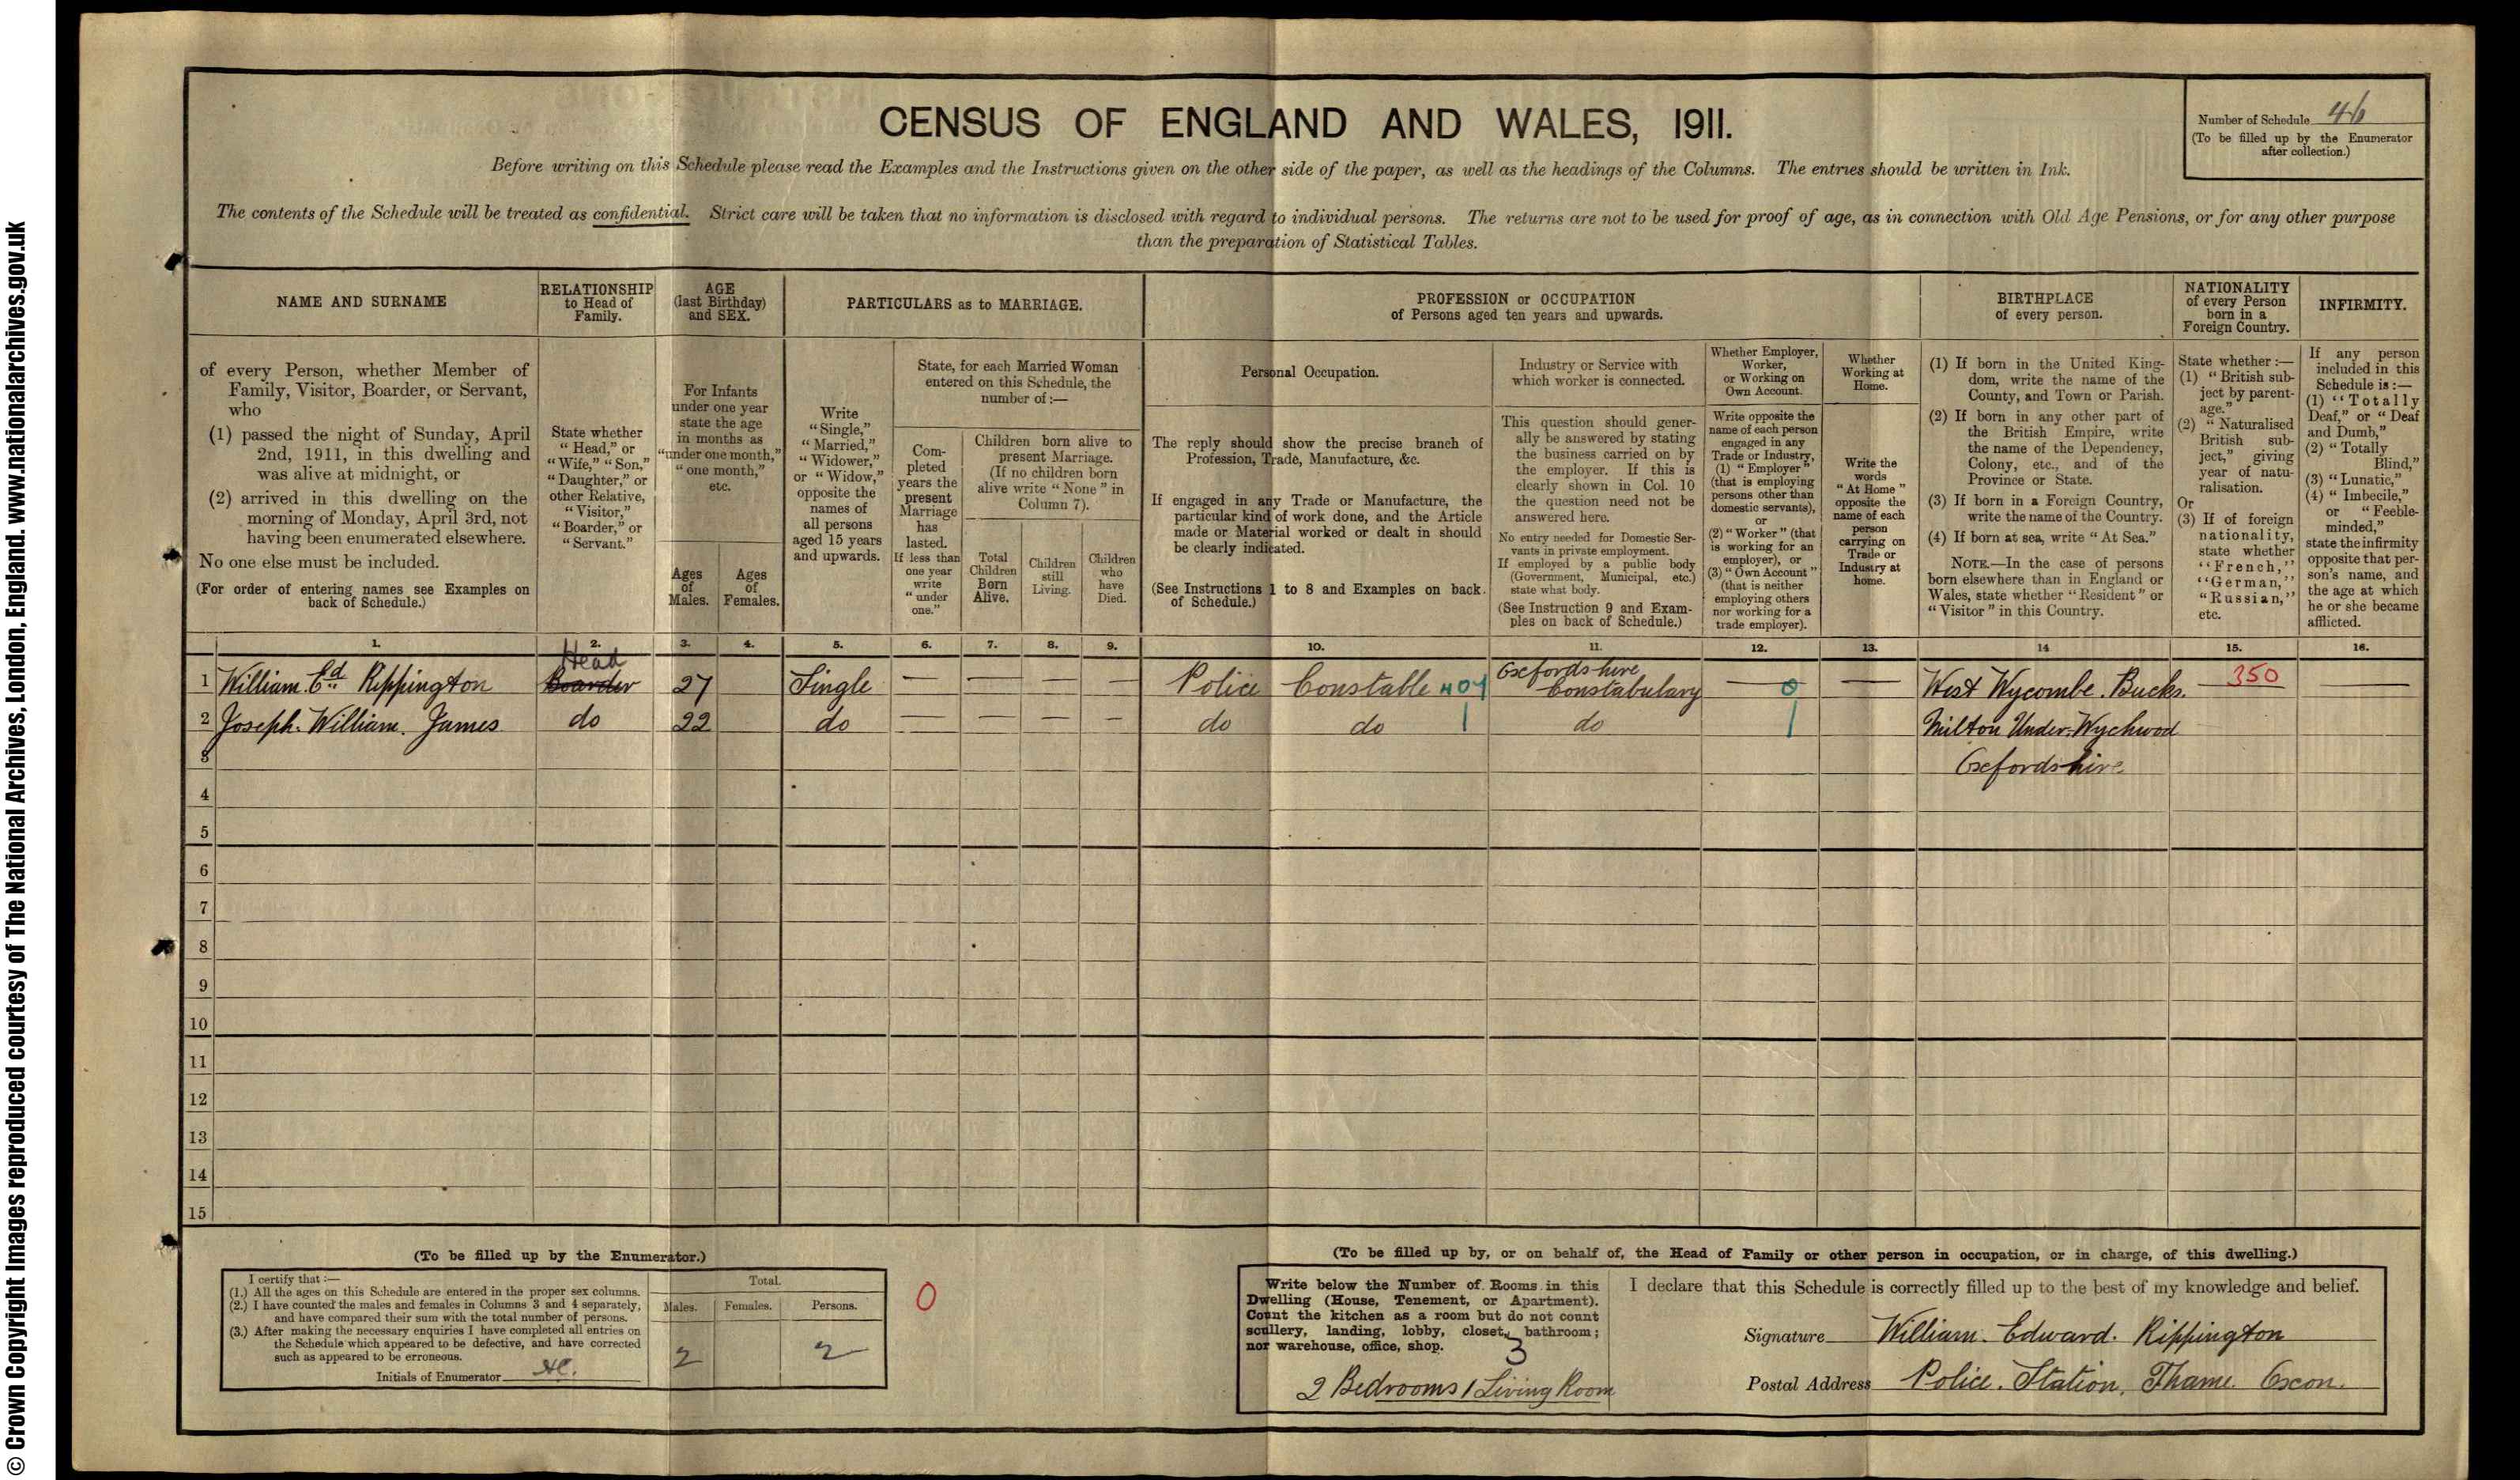 © Crown Copyright Images reproduced courtesy of The National Archives, London, England. www.nationalarchives.gov.uk
CENSUS OF ENGLAND AND WALES, 1911.
Number of Schedule 46
(To be filled up by the Enumerator
after collection.)
Before writing on this Schedule please read the Examples and the Instructions given on the other side of the paper, as well as the headings of the Columns. The entries should be written in Ink.
The contents of the Schedule will be treated as confidential. Strict care will be taken that no information is disclosed with regard to individual persons. The returns are not to be used for proof of age, as in connection with Old Age Pensions, or for any other purpose
than the preparation of Statistical Tables.
NAME AND SURNAME
RELATIONSHIP
to Head of
Family.
AGE
(last Birthday)
and SEX.
PARTICULARS as to MARRIAGE.
PROFESSION or OCCUPATION
of Persons aged ten years and upwards.
BIRTHPLACE
of every person.
NATIONALITY
of every Person
born in a
Foreign Country.
INFIRMITY.
of every Person, whether Member of
Family, Visitor, Boarder, or Servant,
who
(1) passed the night of Sunday, April
2nd, 1911, in this dwelling and
was alive at midnight, or
(2) arrived in this dwelling on the
morning of Monday, April 3rd, not
having been enumerated elsewhere.
No one else must be included.
(For order of entering names see Examples on
back of Schedule.)
State whether
"Head," or
"Wife," "Son,"
"Daughter," or
other Relative,
"Visitor,"
"Boarder," or
"Servant."
For Infants
under one year
state the age
in months as
"under one month,"
"one month,"
etc.
Ages
of
Males.
Ages
of
Females.
Write
"Single,"
"Married,"
"Widower,"
or "Widow,"
opposite the
names of
all persons
aged 15 years
and upwards.
State, for each Married Woman
entered on this Schedule, the
number of :—
Com-
pleted
years the
present
Marriage
has
lasted.
If less than
one year
write
"under
one."
Children born alive to
present Marriage.
(If no children born
alive write "None" in
Column 7).
Total
Children
Born
Alive.
Children
still
Living.
Children
who
have
Died.
Personal Occupation.
The reply should show the precise branch of
Profession, Trade, Manufacture, &c.
If engaged in any Trade or Manufacture, the
particular kind of work done, and the Article
made or Material worked or dealt in should
be clearly indicated.
(See Instructions 1 to 8 and Examples on back
of Schedule.)
Industry or Service with
which worker is connected.
This question should gener-
ally be answered by stating
the business carried on by
the employer. If this is
clearly shown in Col. 10
the question need not be
answered here.
No entry needed for Domestic Ser-
vants in private employment.
If employed by a public body
(Government, Municipal, etc.)
state what body.
(See Instruction 9 and Exam-
ples on back of Schedule.)
Whether Employer,
Worker,
or Working on
Own Account.
Write opposite the
name of each person
engaged in any
Trade or Industry,
(1) "Employer"
(that is employing
persons other than
domestic servants),
or
(2) "Worker" (that
is working for an
employer), or
(3) "Own Account"
(that is neither
employing others
nor working for a
trade employer).
Whether
Working at
Home.
Write the
words
"At Home"
opposite the
name of each
person
carrying on
Trade or
Industry at
home.
(1) If born in the United King-
dom, write the name of the
County, and Town or Parish.
(2) If born in any other part of
the British Empire, write
the name of the Dependency,
Colony, etc., and of the
Province or State.
(3) If born in a Foreign Country,
write the name of the Country.
(4) If born at sea, write "At Sea."
NOTE.—In the case of persons
born elsewhere than in England or
Wales, state whether "Resident" or
"Visitor" in this Country.
State whether :—
(1) "British sub-
ject by parent-
age."
(2) "Naturalised
British sub-
ject," giving
year of natu-
ralisation.
Or
(3) If of foreign
nationality,
state whether
"French,"
"German,"
"Russian,"
etc.
If any person
included in this
Schedule is :—
(1) "Totally
Deaf," or "Deaf
and Dumb,"
(2) "Totally
Blind,"
(3) "Lunatic,"
(4) "Imbecile,"
or "Feeble-
minded,"
state the infirmity
opposite that per-
son's name, and
the age at which
he or she became
afflicted.
1. 2. 3. 4. 5. 6. 7. 8. 9. 10. 11. 12. 13. 14 15. 16.
Head
Oxfordshire
1 William Ed Rippington Boarder 27 Single — — — — Police Constable 401 Constabulary — 0 — West Wycombe. Bucks. 350 —
2 Joseph. William. James do 22 do — — — — do do do Milton Under-Wychwood
3 Oxfordshire
4
5
6
7
8
9
10
11
12
13
14
15
(To be filled up by the Enumerator.)
I certify that :—
(1.) All the ages on this Schedule are entered in the proper sex columns.
(2.) I have counted the males and females in Columns 3 and 4 separately,
and have compared their sum with the total number of persons.
(3.) After making the necessary enquiries I have completed all entries on
the Schedule which appeared to be defective, and have corrected
such as appeared to be erroneous.
Initials of Enumerator
Total.
Males. Females. Persons.
2 2
0
(To be filled up by, or on behalf of, the Head of Family or other person in occupation, or in charge, of this dwelling.)
Write below the Number of Rooms in this
Dwelling (House, Tenement, or Apartment).
Count the kitchen as a room but do not count
scullery, landing, lobby, closet, bathroom;
nor warehouse, office, shop.
3
2 Bedrooms 1 Living Room
I declare that this Schedule is correctly filled up to the best of my knowledge and belief.
Signature William. Edward. Rippington
Postal Address Police. Station, Thame. Oxon.